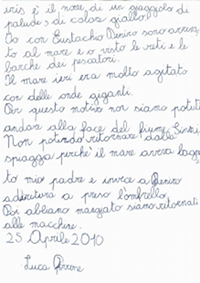 iris è il nome di un giaggiolo di
palude, di colore giallo.
Io con Eustachio Derino sono arriva
to al mare e o visto le reti e le
barche dei pescatori.
Il mare ieri era molto agitato
con delle onde giganti.
Per questo motivo non siamo potuti
andare alla foce del fiume
Non potendo ritornare dalla
spiaggia perchè il mare aveva bagna
to mio padre e invece a
adiritura a preso l'ombrello.
Poi abbiamo mangiato siamo ritornati
alle macchine.
25 Aprile 2010
Luca